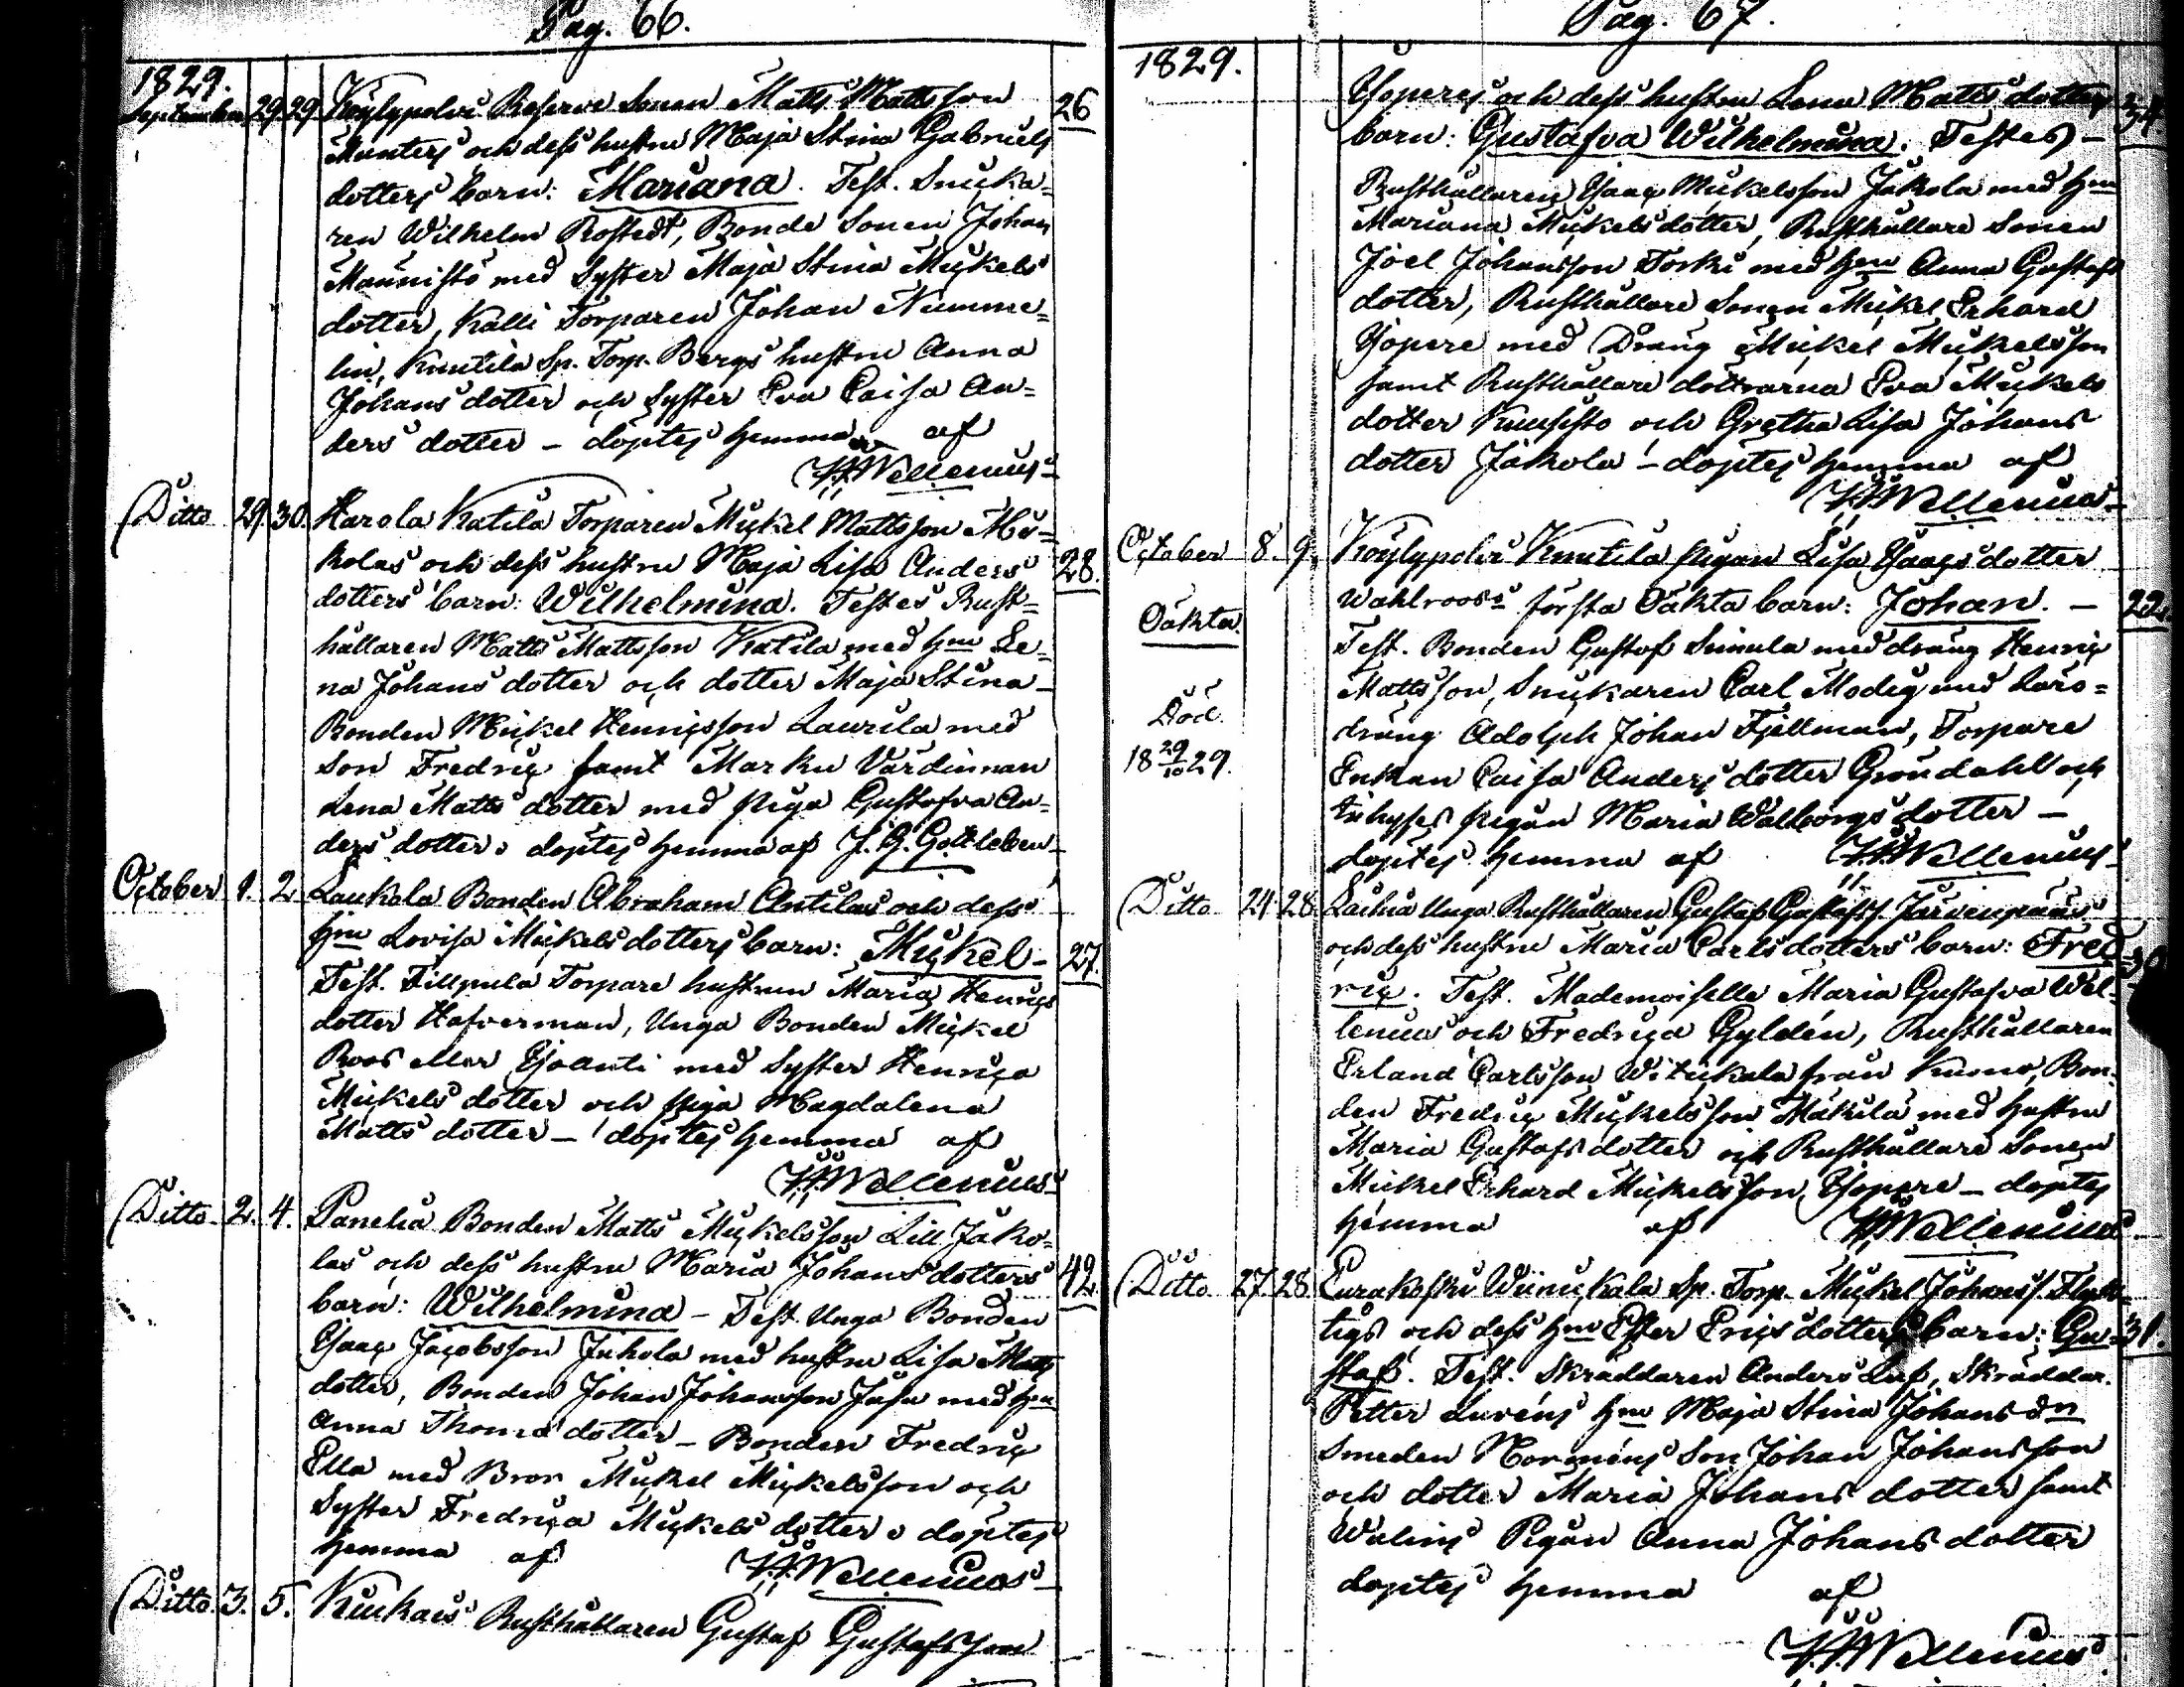 Pag. 66.
1829.
September 29. 29. Köylypolvi Reserve Sonen Matts Mattsson 26
Munters och dess hustru Maja Stina Gabriels
dotters barn: Mariana. Test. Snicka=
ren Wilhelm Rostedt, Bonde Sonen Johan
Mannisto med Syster Maja Stina Mickels
dotter, Kalli Torparen Johan Numme=
lin, Knutila Sp. Torp. Bergs hustru Anna
Johans dotter och Syster Eva Caisa An=
ders dotter – döptes hemma af
Wellenius
Ditto 29. 30. Harola Katila Torparen Mickel Mattsson
kolas och dess hustru Maja Lisa Anders 28.
dotters barn: Wilhelmina. Testes Rust=
hållaren Matts Mattsson Katila med hru Le=
na Johans dotter och dotter Maja Stina
Bonden Mickel Henricsson Laurila med
Son Fredric samt Marku Värdinnan
Lena Matts dotter med piga Gustafva An=
ders dotter. döptes hemma af J. G. Gottleben
October 1. 2. Laukola Bonden Abraham Antilas och dess
hru Lovisa Mickels dotters barn: Mickel – 27.
Test. Fillpula Torpare hustrun Maria Henrics
dotter Hafverman, Unga Bonden Mickel
Roos eller Ejoanti med Syster Henrica
Mickels dotter och piga Magdalena
Matts dotter – döptes hemma af
Wellenius
Ditto 2. 4. Panelia Bonden Matts Mickelsson Lill Jako=
las och dess hustru Maria Johans dotters 42
barn: Wilhelmina – Test. Unga Bonden
Isaac Jacobsson Juhola med hustru Lisa Matts
dotter, Bonden Johan Johansson Jusa med hru
Anna Thomas dotter – Bonden Fredric
Ella med Bror Mickel Mickelsson och
Syster Fredrica Mickels dotter. döptes
hemma af
Wellenius
Ditto 3. 5. Kiukais Rusthållaren Gustaf Gustafsson
Pag. 67.
1829.
Yöperes och dess hustru Lena Matts dotters 34
barn: Gustafva Wilhelmina. Testes –
Rusthållaren Isaac Mickelsson Jakola med hru
Mariana Mickels dotter, Rusthållare Sonen
Joel Johansson Torki med hru Anna Gustafs
dotter, Rusthållare Sonen Mickel Erhard
Yöpere med Dräng Mickel Mickelsson
samt Rusthållare döttrarna Eva Mickels
dotter Kuusisto och Gretha Lisa Johans
dotter Jakola – döptes hemma af
Wellenius
October 8. 9. Köylypolvi Knutila pigan Lisa Isaacs dotter
Oäkta. Wahlroos's första Oäkta barn: Johan. – 22
Test. Bonden Gustaf Simula med dräng Henric
Mattsson, Snickaren Carl Modig med Läro=
Död. dräng Adolph Johan Fjellman, Torpare
18 29/10 29. Enkan Caisa Anders dotter Gröndahl och
Inhyses pigan Maria Walborgs dotter –
döptes hemma af Wellenius
Ditto 24 28. Laihia Unga Rusthållaren Gustaf Gustafss. Järvenpääs
och dess hustru Maria Carls dotters barn: Fred=
ric. Test. Mademoiselle Maria Gustafva Wel=
lenius och Fredrica Gyldén, Rusthållaren
Erland Carlsson Witikala från Kumo, Bon=
den Fredric Mickelsson Mäkilä med hustru
Maria Gustafs dotter och Rusthållare Sonen
Mickel Erhard Mickelsson Yöpere – döptes
hemma af Wellenius
Ditto 27. 28. Eurakoski Wiinickala Sp. Torp. Mickel Johanss. Flyk=
tigs och dess hru Ester Erics dotters barn: Gu= 31.
staf. Test. Skräddaren Anders Löf, Skräddar.
Petter Lurens hru Maja Stina Johans dn
Smeden Norrmens Son Johan Johansson
och dotter Maria Johans dotter samt
Wulins Pigan Anna Johans dotter
döptes hemma af
Wellenius